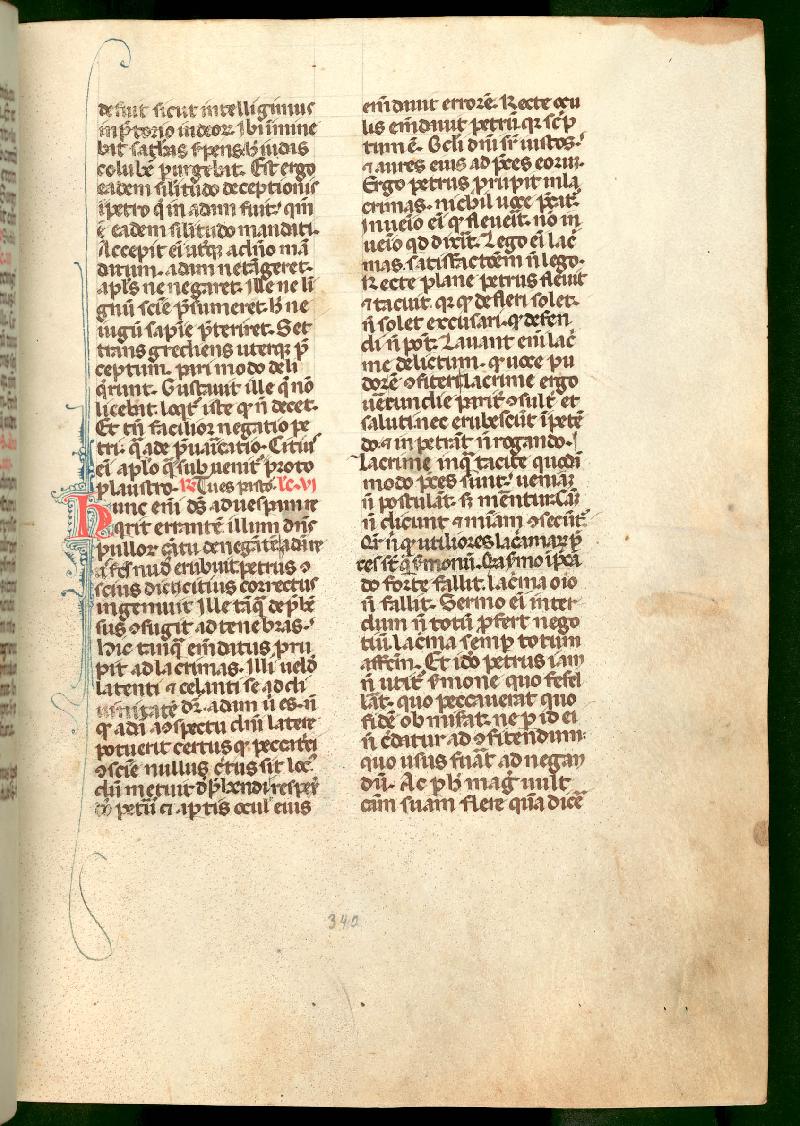 defuit sicut intelligimus
in p̄torio ideoꝝ. Ibi īmine
bit sathās s̄pens. h̄ iudas
colubē purgebit. Est ergo
eadem silitudo deceptionis
ī petro q̄ in adam fuit. qm̄
⁊ eadem silitudo mandati.
Accepit eī utqꝫ a dn̄o mā
datum. adam ne tāgeret.
apl̄s ne negaret. Ille ne li
gnū sciē p̄sumeret. h̄ ne
iugū sapiē p̄teriret. Set
transgrediens uterqꝫ p̄
ceptum. pari modo deli
q̄runt. Gustauit ille q̄ nō
licebat. loqt̄ iste q̄ n̄ decet.
Et tn̄ facilior negatio pe
tri. q̄ ade p̄uaricatio. Citius
eī aplo q̄ subuenit proto
plaustro. ℟ Tues petrꝰ. lc̄. vi
Hunc eni ds̄ ad uesperum
q̄rit errantē illum dn̄s
pulloꝝ cātu
nud erubuit petrus ⁊
scius citius correctus
ingemuit Ille tāq̄ dep̄hē
sus ꝯfugit ad tenebras.
hic tanq̄ emdatus pru
pit ad lacrimas. Illi uelō
latenti ⁊ celanti se
dr̄. adam u es. n̄
q̄ adā aꝯspectu dn̄i latere
potuerit certus q̄ peccati
ꝯsciē nullus tutus sit locꝰ.
dn̄i metuit dp̄hendi. respex̄
petrū ⁊ aptis ocul eius
em̄dauit errorē. Recte ocu
lis em̄dauit petrū. qꝛ sc̄p
tum ē. Oc̄li dn̄i sr̄ iustos.
⁊ aures eius ad p̄ces eorum.
Ergo petrus prupit in la
crimas. nichil uoce p̄cat̄.
Inueīo eī q̄ fleuerit. nō in
ueīo qd dixit̄. Lego eī lac̄
mas. satisfactōem n̄ lego.
Recte plane petrus fleuit
⁊ tacuit. qꝛ q̄ defleri solet.
n̄ solet excusari. ⁊ q̄ defen
di n̄ pot̄. Lauant eni lac̄
me delictum. q̄ uoce pu
dorē ꝯfiteri. lacrime ergo
uerecundie parit̄ ꝯsulūt et
saluti. nec erubescūt ī petē
do. ⁊ inpetrāt n̄ rogando.
lacrime inq̄ tacite quodā
modo p̄ces sunt. ueniam
n̄ postulāt. s̄ꝫ merentur. Cām
n̄ dicunt ⁊ mīam ꝯsecūt̄.
Qꝛ n̄ q̄ utiliores lacimaꝝ p̄
ces st̄ q̄ s̄monū. Qꝛ s̄mo ī p̄cā
do forte fallit. lacīma oīo
n̄ fallit. Sermo eī inter
dum n̄ totū p̄fert nego
tiū. lacīma semp̄ totum
affc̄m. Et ideo petrus iam
n̄ utit̄ s̄mone quo fefel
lāt. quo peccauerat. quo
fidē obmisāt. ne p̄ id eī
n̄ c̄datur ad ꝯfitendum.
quo usus fuāt ad negan
dū. Ac p̄h̄ mag̀ uult
cām suam flere q̄m dicē
340